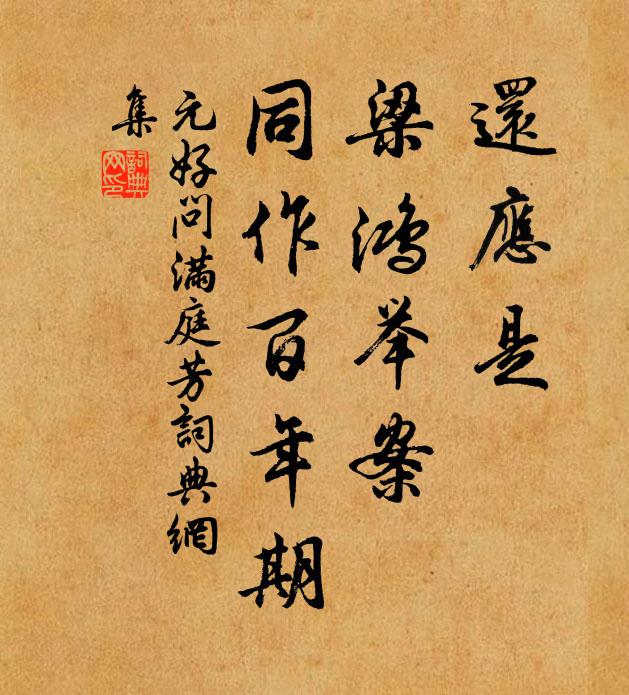 還應是
梁鴻举案
同作百年期
元好问滿庭芳詞典網
集
詞典
网印